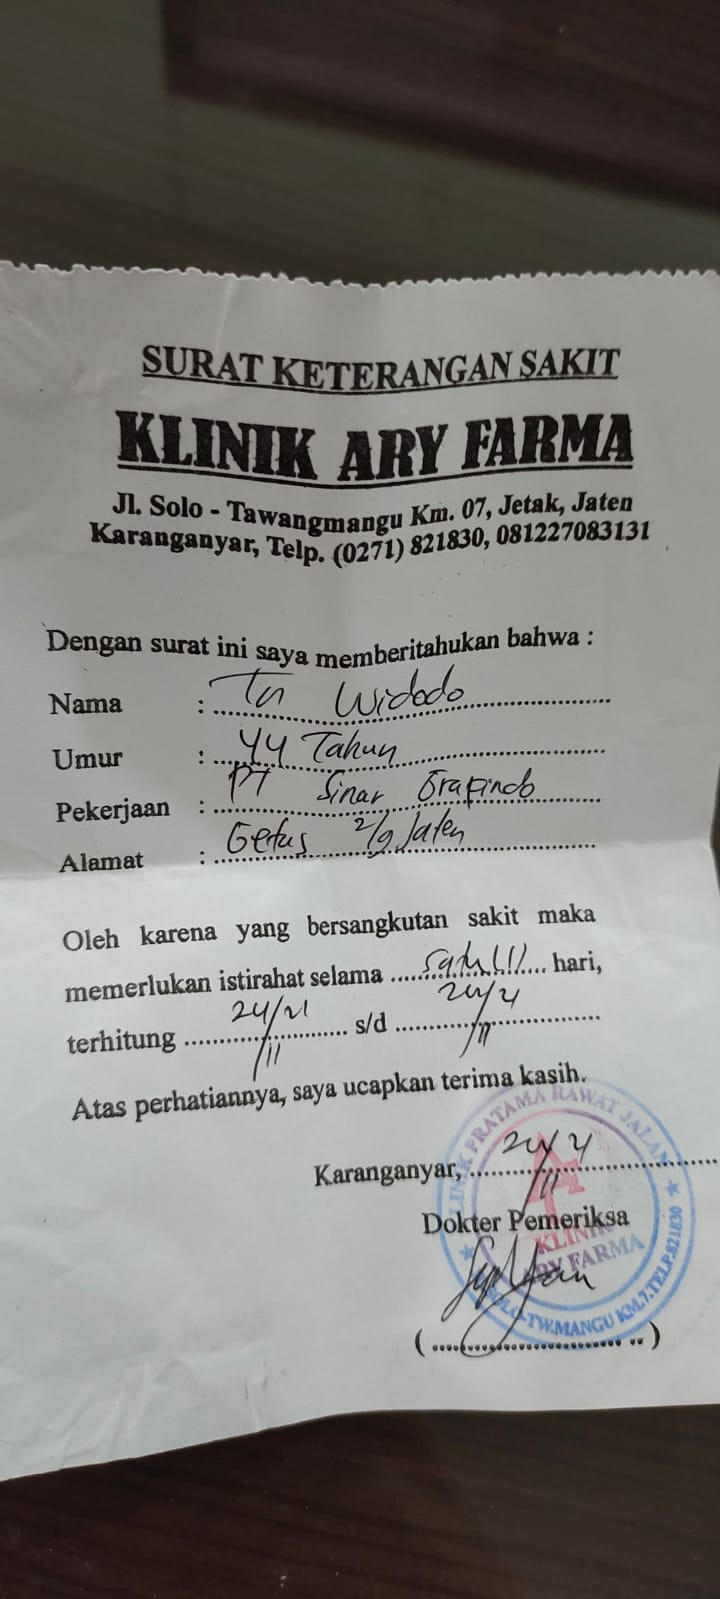 SURAT KETERANGAN SAKIT
KLINIK ARY FARMA
Jl. Solo - Tawangmangu Km. 07, Jetak, Jaten
Karanganyar, Telp. (0271) 821830, 081227083131
Dengan surat ini saya memberitahukan bahwa :
Nama : Tn Widodo
Umur : 44 Tahun
Pekerjaan : PT Sinar Grafindo
Alamat : Getas 2/9 Jaten
Oleh karena yang bersangkutan sakit maka
memerlukan istirahat selama satu (1) hari,
terhitung 24/11 21 s/d 24/11 21
Atas perhatiannya, saya ucapkan terima kasih.
Karanganyar, 24/11 21
Dokter Pemeriksa
KLINIK PRATAMA RAWAT JALAN
KLINIK
ARY FARMA
SOLO-TW.MANGU KM.7.TELP.821830